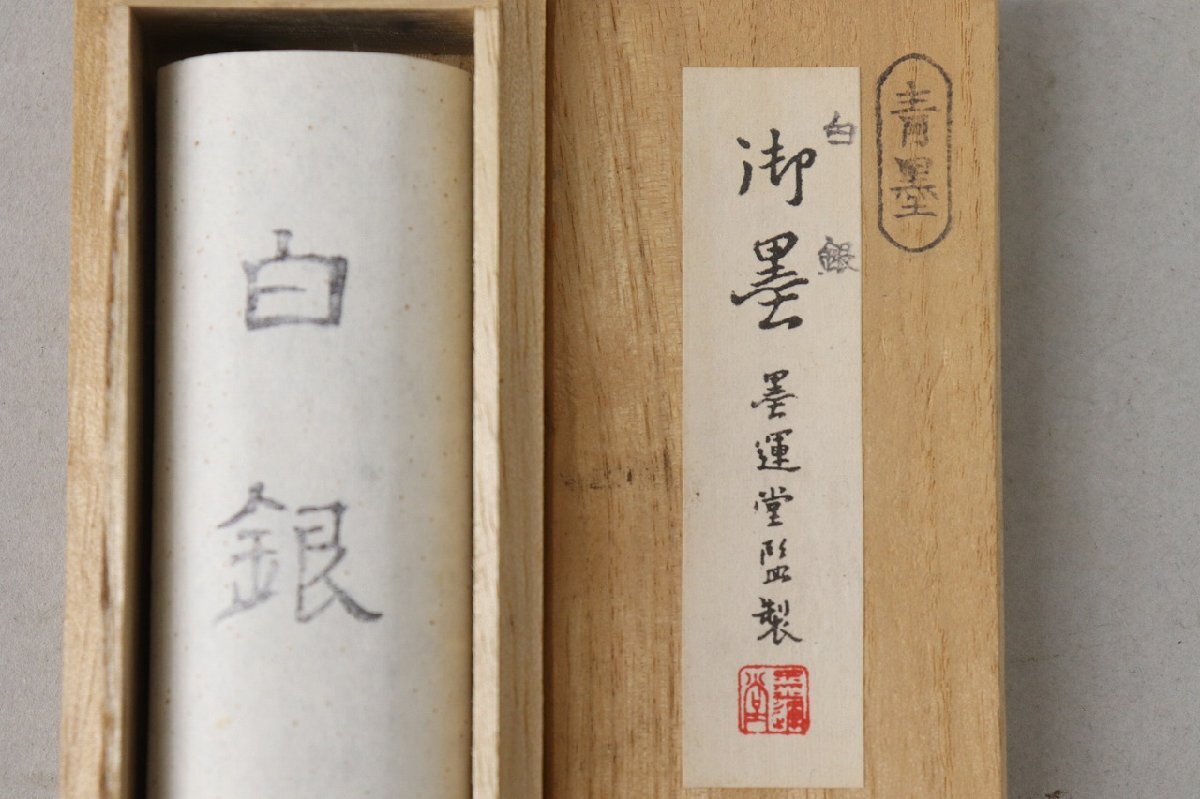 青墨
白銀
御墨 墨運堂監製
墨運堂
白銀